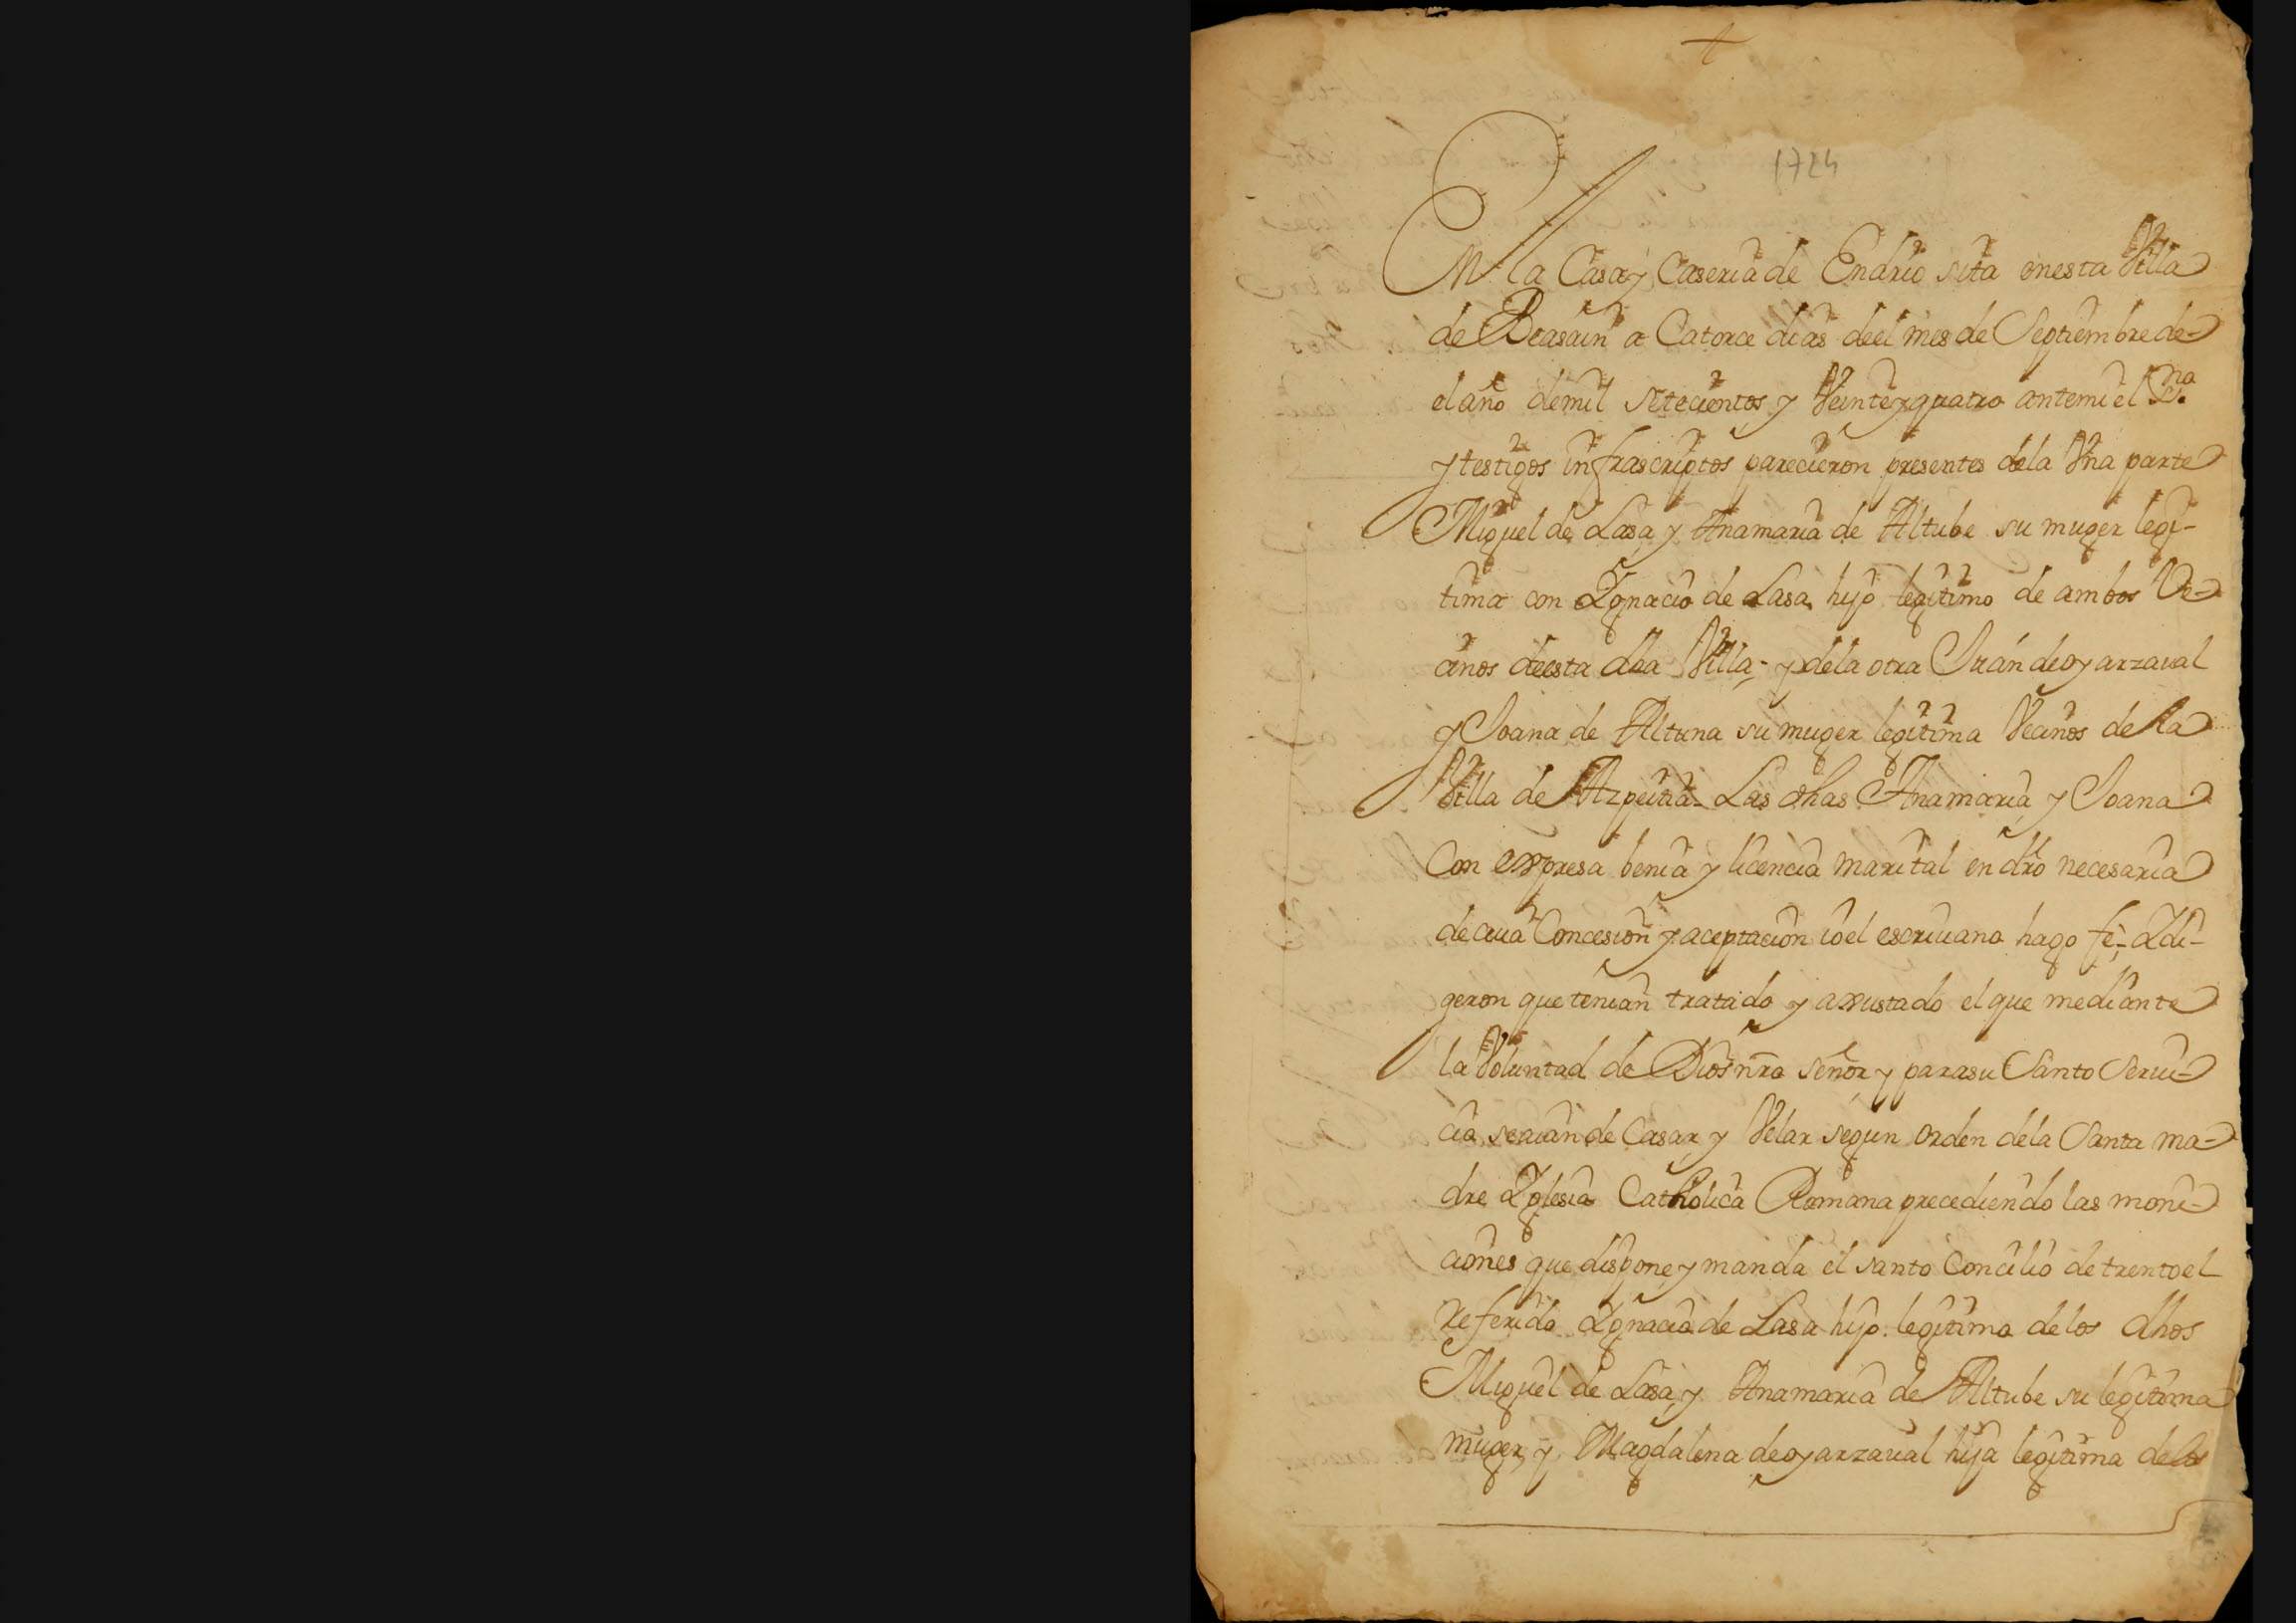 +
1724
En la Casa y Caseria de Endrio sita en esta Villa
de Beasain a Catorce dias de el mes de Septiembre de
el año de mil setecientos y Veinte y quatro ante mi el
y testigos infrascriptos parecieron presentes de la Vna parte
Miguel de Lasa, y Anamaria de Altube su muger legi-
tima con Ygnacio de Lasa hijo legitimo de ambos Ve-
cinos de esta dha Villa, y de la otra Juan de oyarzaual
y Joana de Altuna su muger legitima Vecinos de la
Villa de Azpeitia. Las dhas Anamaria, y Joana
Con expresa benia y licencia marital en dro necesaria
de cuia Concesion y aceptacion io el escriuano hago fe, Y di-
geron que tenian tratado y axustado el que mediante
la Voluntad de Dios nro señor y para su Santo Serui-
cio se aian de Casar, y Velar segun orden de la Santa ma-
dre Yglesia Catholica Romana precediendo las moni-
ciones que dispone, y manda el santo Concilio de trento el
referido Ygnacio de Lasa hijo legitimo de los dhos
Miguel de Lasa, y Anamaria de Altube su legitima
muger, y Magdalena de oyarzaual hija legitima de los